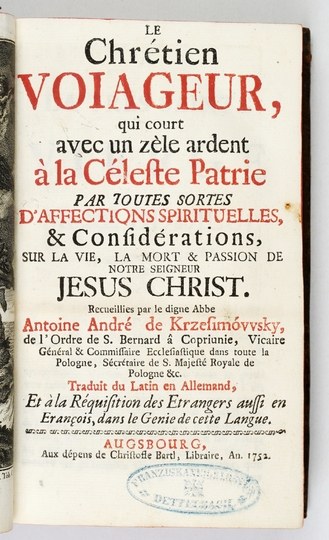 LE
Chrétien
VOIAGEUR,
qui court
avec un zèle ardent
à la Céleste Patrie
PAR TOUTES SORTES
D'AFFECTIONS SPIRITUELLES,
& Considérations,
SUR LA VIE, LA MORT & PASSION DE
NOTRE SEIGNEUR
JESUS CHRIST.
Recueillies par le digne Abbe
Antoine André de Krzesimóvvsky,
de l'Ordre de S. Bernard â Copriunie, Vicaire
Général & Commissaire Ecclesiastique dans toute la
Pologne, Sécrétaire de S. Majesté Royale de
Pologne &c.
Traduit du Latin en Allemand,
Et à la Réquisition des Etrangers aussi en
Erançois, dans le Genie de cette Langue.
AUGSBOURG,
Aux dépens de Christoffe Bartl, Libraire, An. 1752.
FRANZISKANER-KLOSTER
DETTELBACH